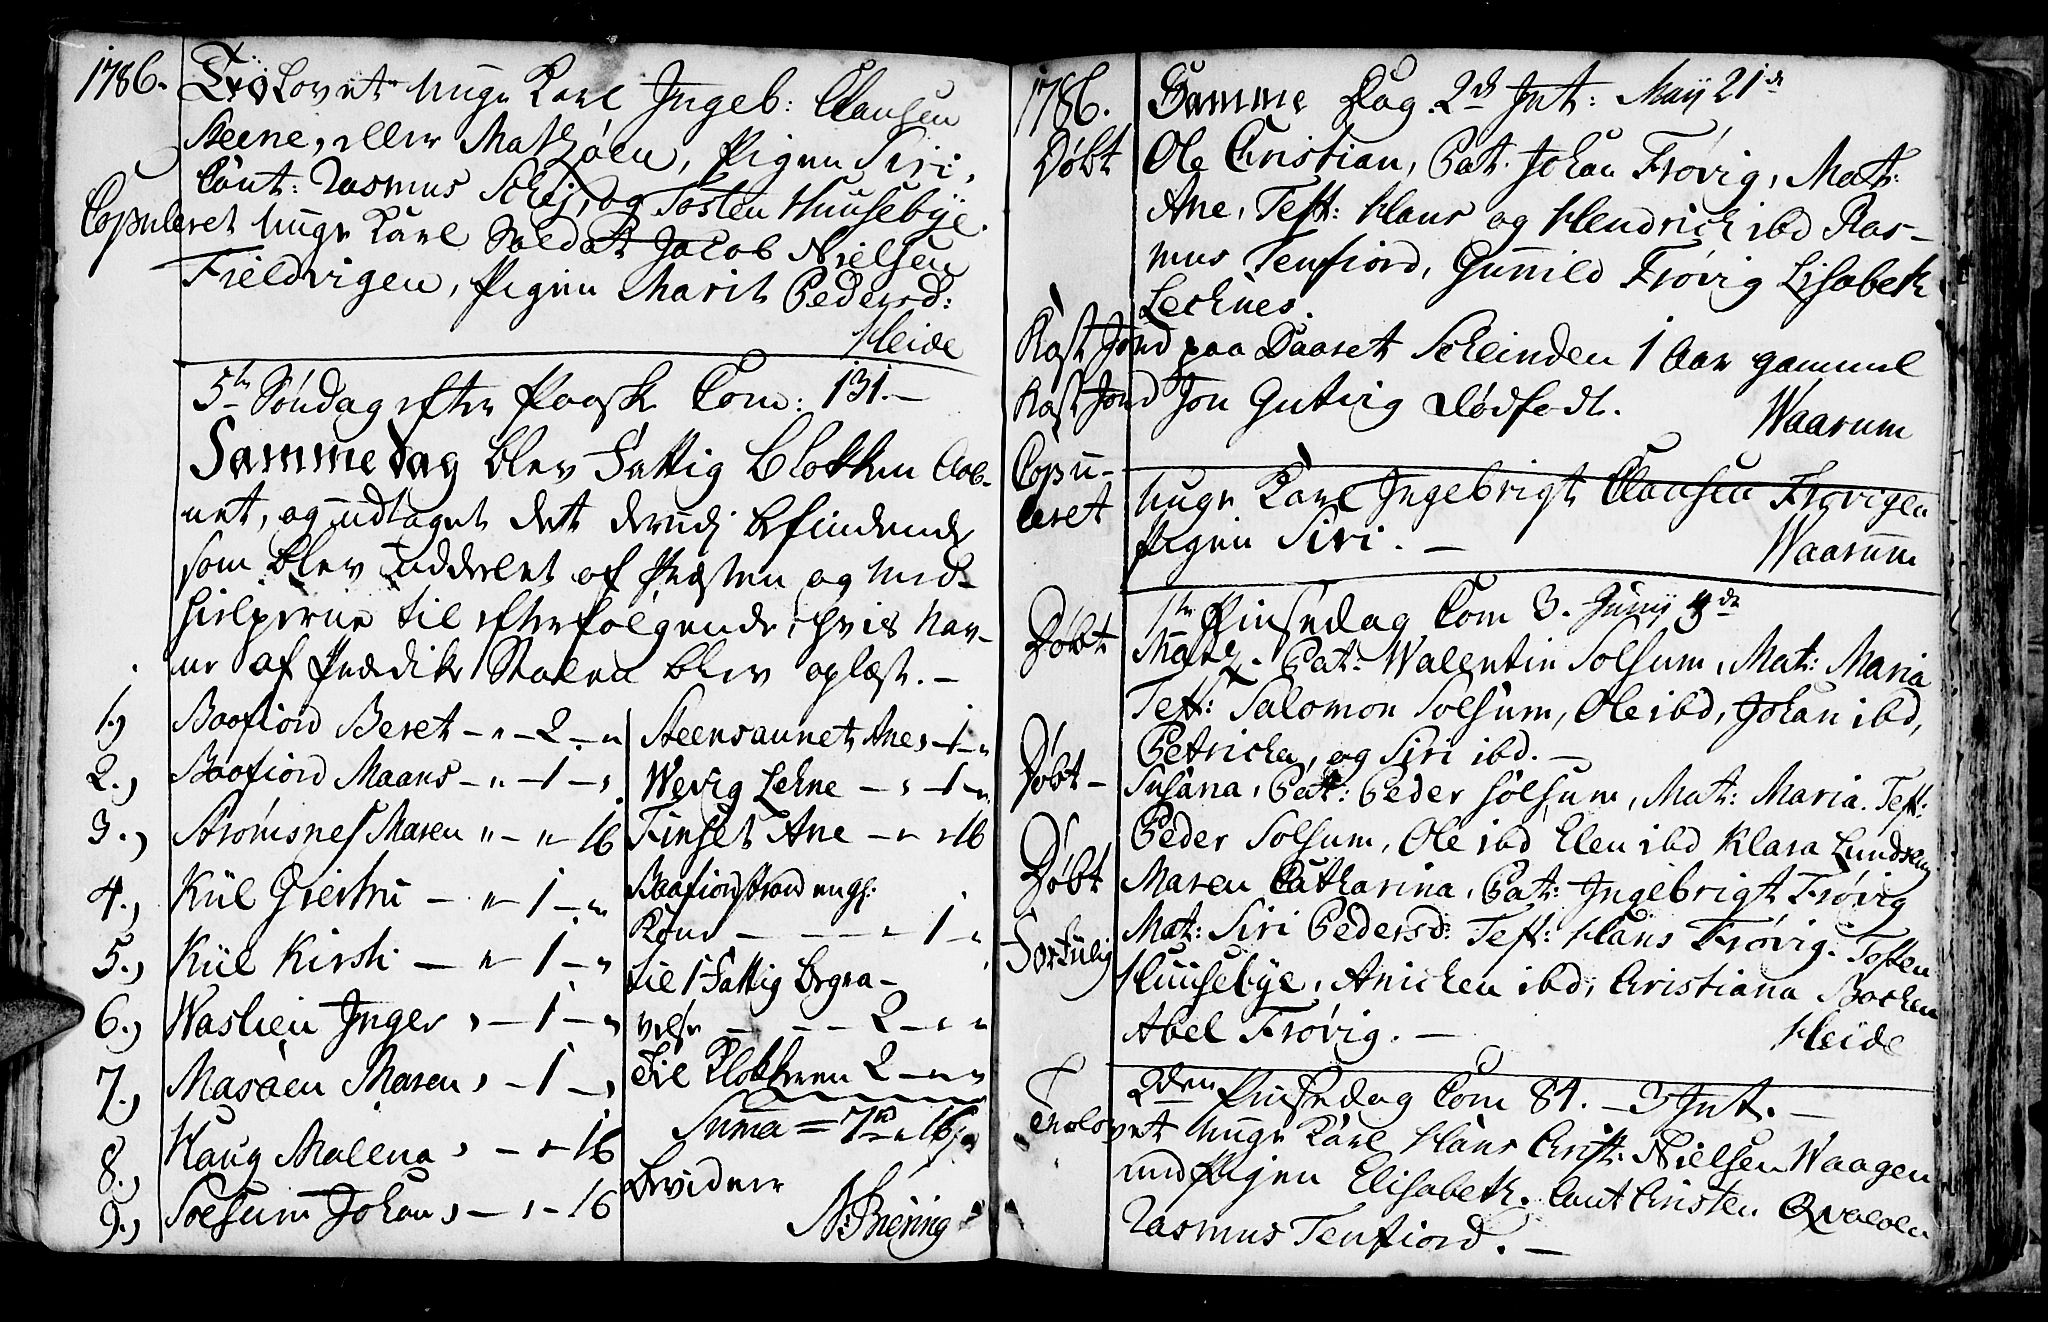 1786. Trolovet unge Karl Ingeb: Clausen
Steene, eller Matzøen, Pigen Siri,
Caut: Rasmus Schej, og Tosten Huusebÿe.
Copuleret unge Karl Soldat Jacob Nielsen
Fieldvigen, Pigen Marit Pedersd:
Heide
5te Søndag efter Paask Com: 131.—
Samme dag blev Fattig Blokken Aab-
net, og udtaget dett derudj befindende
som blev uddeelet af Præsten og Med-
hielperne til efterfølgende, hvis Nav-
ne af Prædike Stolen blev oplæst.—
1.) Baafiord Beret — " — 2 — "
2.) Baafiord Maans — " — 1 — "
3.) Strømsnes Maren " — " 16
4.) Kiil Giertru — " 1 — "
5.) Kiil Kirsti — " 1 — "
6.) Waslien Inger , — 1 — "
7.) Masøen Maren , — 1 — ,
8.) Haug Malena , — " 16
9.) Solsum Johan , — , — 16
Steensaunet Ane , — 1 — "
Wevig Lehne — , 1 — "
Finset Ane — " " 16
Baafiordstrand
Kone — — — " 1 — "
til 1 Fattig Begra-
velse — — — 2 — " "
Til Klokkeren 2 — " "
Suma = 7 rd " 16 s
bevidner
N: Brering
1786. Samme Dag 2d Int: Maÿ 21de
Døbt Ole Christian, Pat. Johan Frøvig, Mat:
Ane, Test: Hans og Hendrich ibd Ras-
mus Tenfiord, Gunild Frøvig Lisabeth
Lechnes.
Kast Jord paa Baaret Scheinden 1 Aar gammel
Kast Jord Jon Gutvig Dødfødt.
Waarum
Copu-
leret unge Karl Ingebrigt Clausen Frøvigen
Pigen Siri. —
Waarum
1te Pinsedag Com 3. Junij 4de
Døbt Matz. Pat: Walentin Solsum, Mat: Maria
Test: Salomon Solsum, Ole ibd, Johan ibd,
Petricha, og Siri ibd. —
Døbt — Susana, Pat: Peder Solsum, Mat: Maria. Test:
Peder Solsum, Ole ibd Elen ibd Klara Lundsen
Døbt Maren Catharina, Pat: Ingebrigt Frøvig
Mat: Siri Pedersd: Test: Hans Frøvig. Tosten
Huusebÿe, Anichen ibd, Christiana Bochen
Abel Frøvig. —
Heide
2den Pinsedag Com 84. — 3 Int. —
Trolovet unge Karl Hans Crist: Nielsen Waagen
med Pigen Elisabeth. Caut Cristen Qvaloen
Rasmus Tenfiord. —